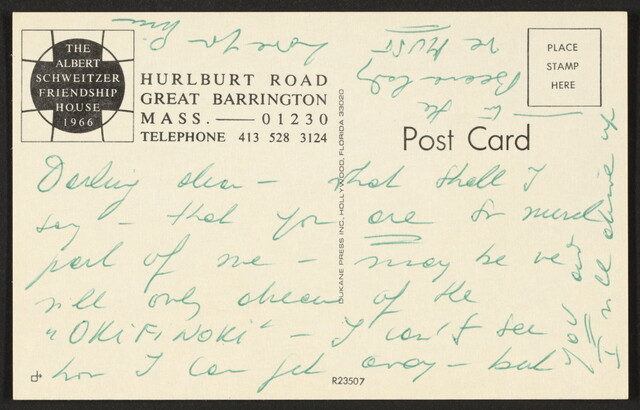 THE
ALBERT
SCHWEITZER
FRIENDSHIP
HOUSE
1966
HURLBURT ROAD
GREAT BARRINGTON
MASS. —— 01230
TELEPHONE 413 528 3124
PLACE
STAMP
HERE
Post Card
DUKANE PRESS INC., HOLLYWOOD, FLORIDA 33020
Darling dear – what shall I
say – that you are so much
part of me – may be we
will only dream of the
"OKIFINOKI" – I can't see
how I can get away – but
you and
I will drive up
to the
we MUST
love you
R23507